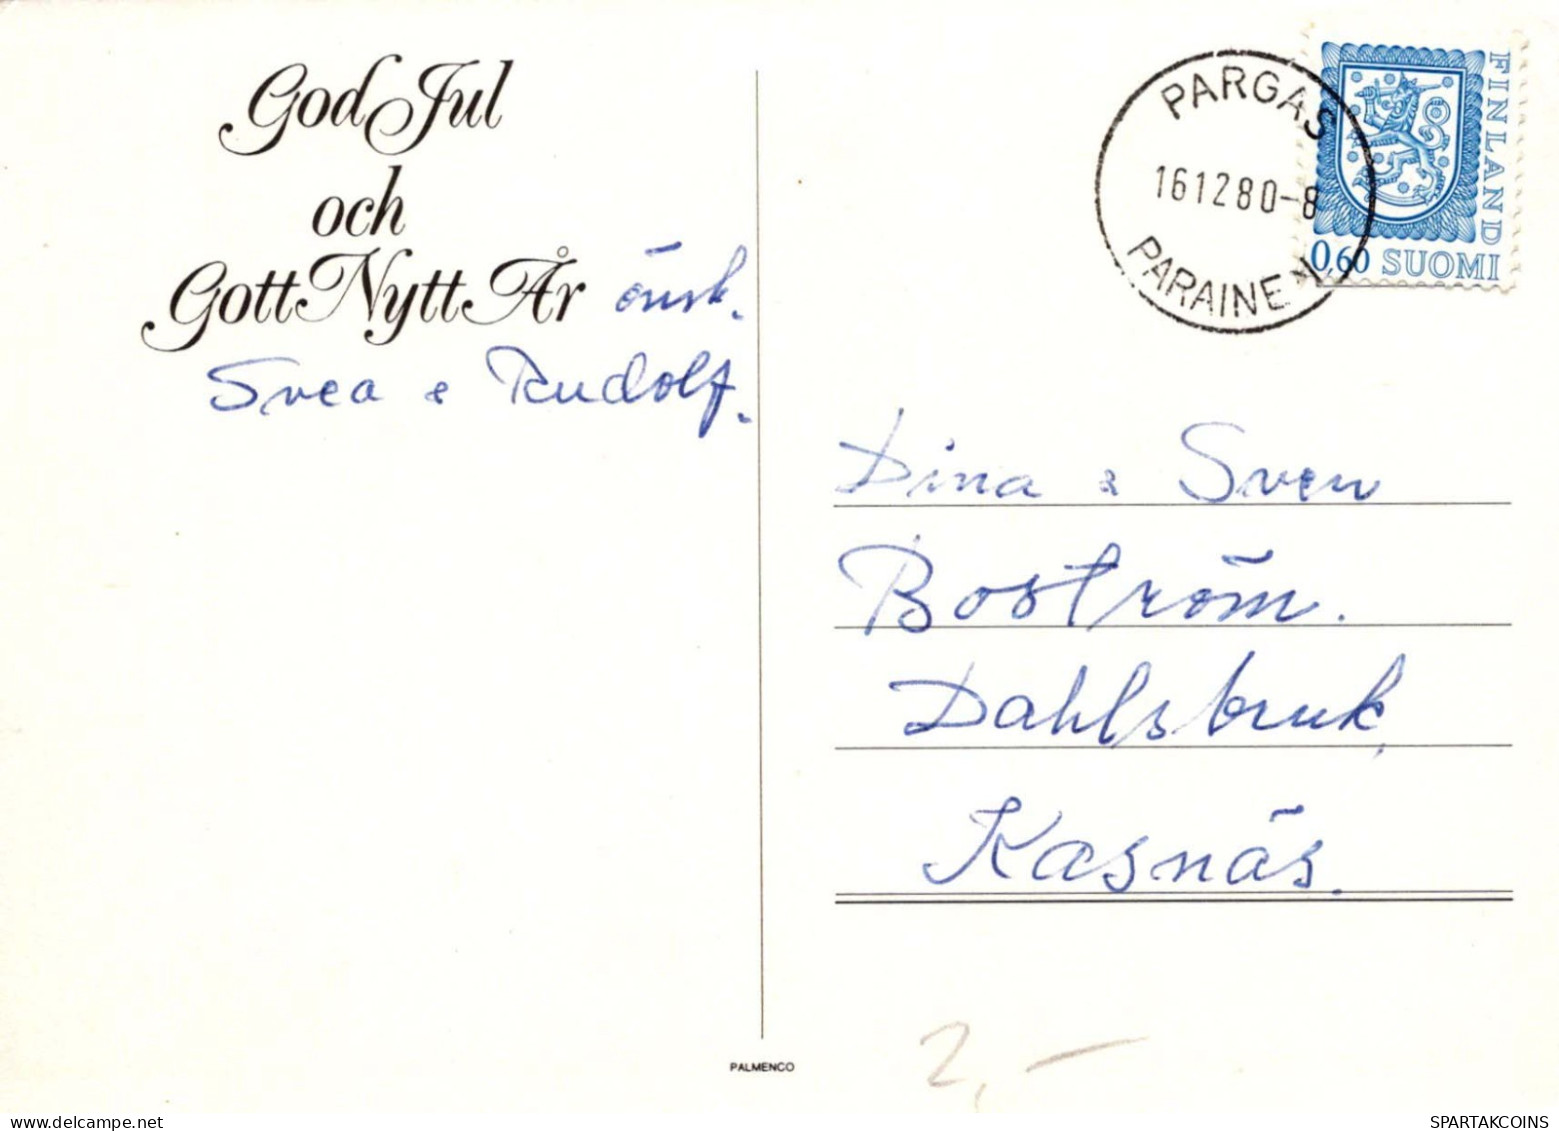 God Jul
och
Gott Nytt År önsk.
Svea & Rudolf.
PARGAS
16.12.80-8
PARAINEN
FINLAND
0,60 SUOMI
Dina & Sven
Boström.
Dahlsbruk,
Kasnäs.
2,-
PALMENCO
SPARTAKCOINS